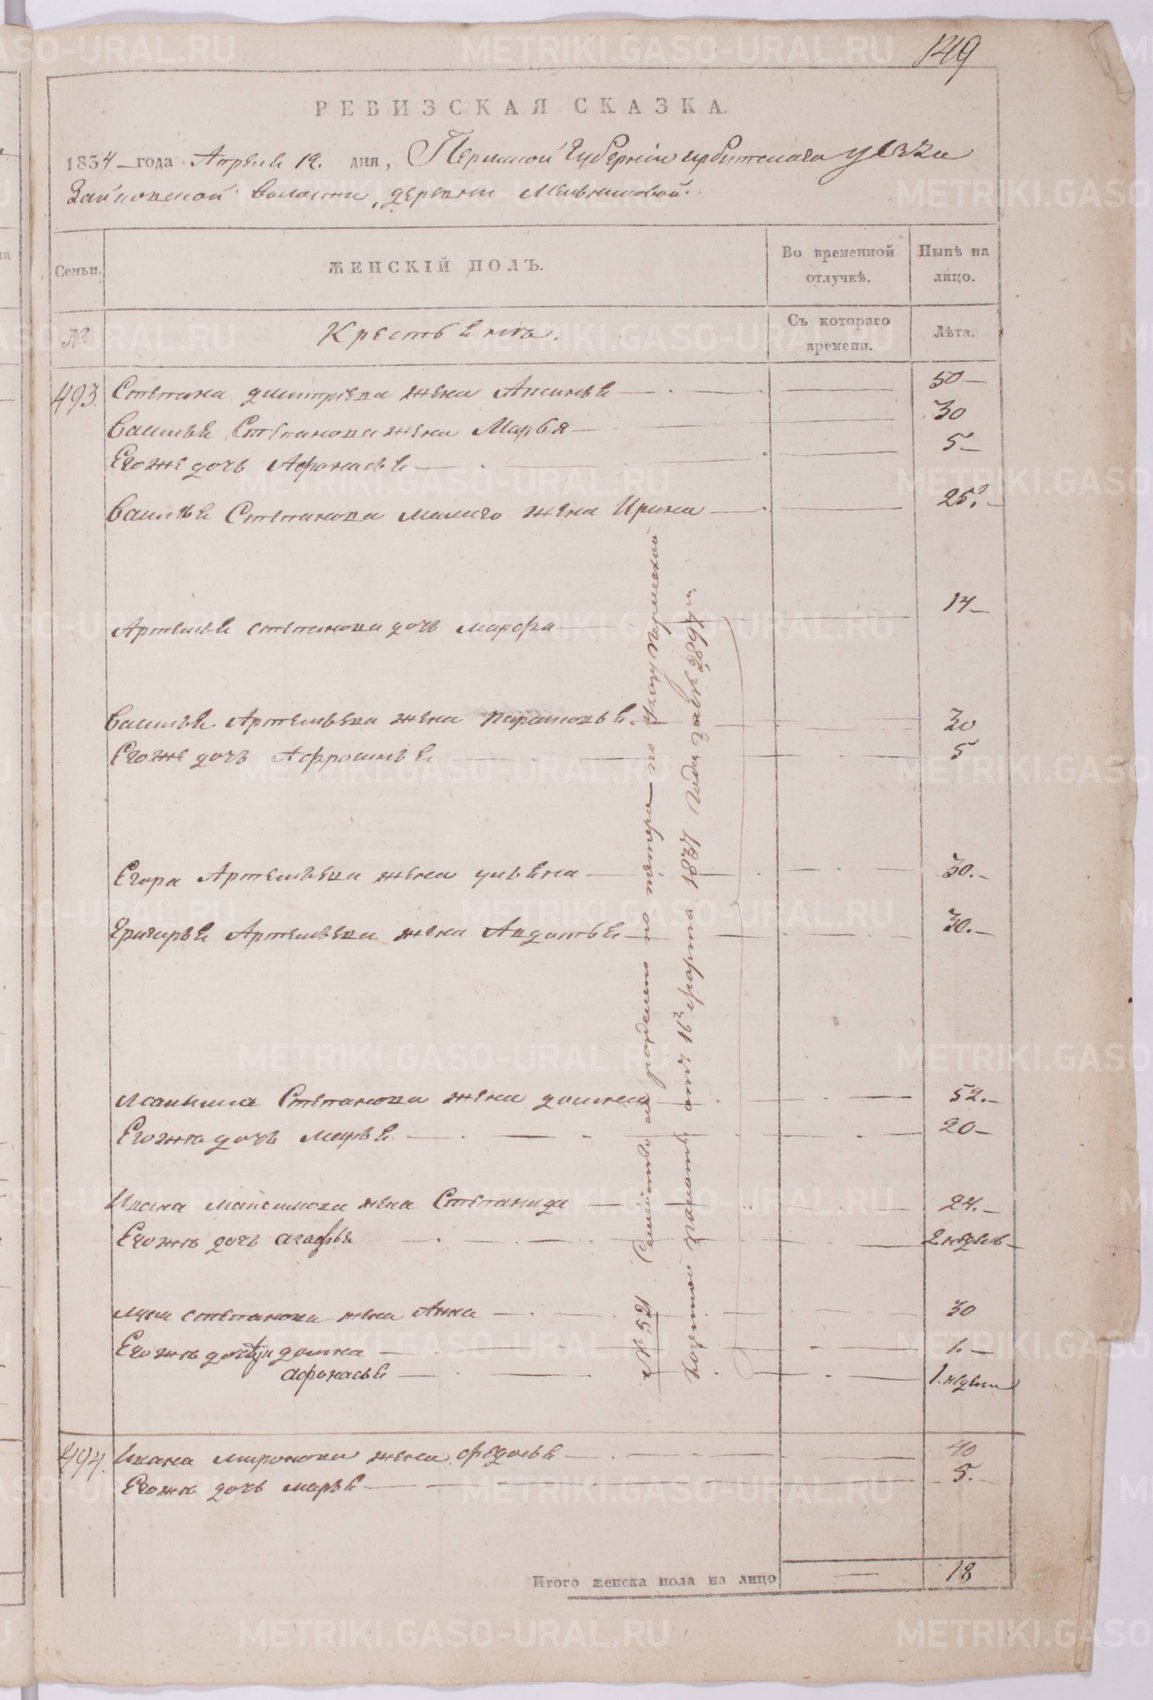 149
РЕВИЗСКАЯ СКАЗКА.
1834 года Апреля 12. дня, Пермской Губернiи ирбитскаго уѣзда
Зайковской Волости, деревни Мельниковой.
Семьи.
ЖЕНСКIЙ ПОЛЪ.
Во временной отлучкѣ.
Нынѣ на лицо.
№
Крестьянъ.
Съ котораго времени.
Лѣта.
493. Степана дмитрiева жена Аксинья 50
Василья Степанова жена Марья 30
Его же дочь Афонасья 5
Василья Степанова малаго жена Ирина 25
Артемья степанова дочь марфа 14
Василья Артемьева жена парасковья 30
Его же дочь Афросинья 5
Егора Артемьева жена ульяна 30.
Григорья Артемьева жена Авдотья 30.
Максима Степанова жена домна 52.
Его жъ дочь марья 20
Ивана максимова жена Степанида 24.
Его жъ дочь агафья 2 недель
луки степанова жена Анна 30
Его жъ дочери домна 1.
афонасья 1. недели
№ 521 Семейство разделено на по указу пермской
казенной палаты отъ 16 марта 1837 года за № 2897м
494. Ивана миронова жена федосья 40
Его жъ дочь марья 5.
Итого женска пола на лицо 18
METRIKI.GASO-URAL.RU